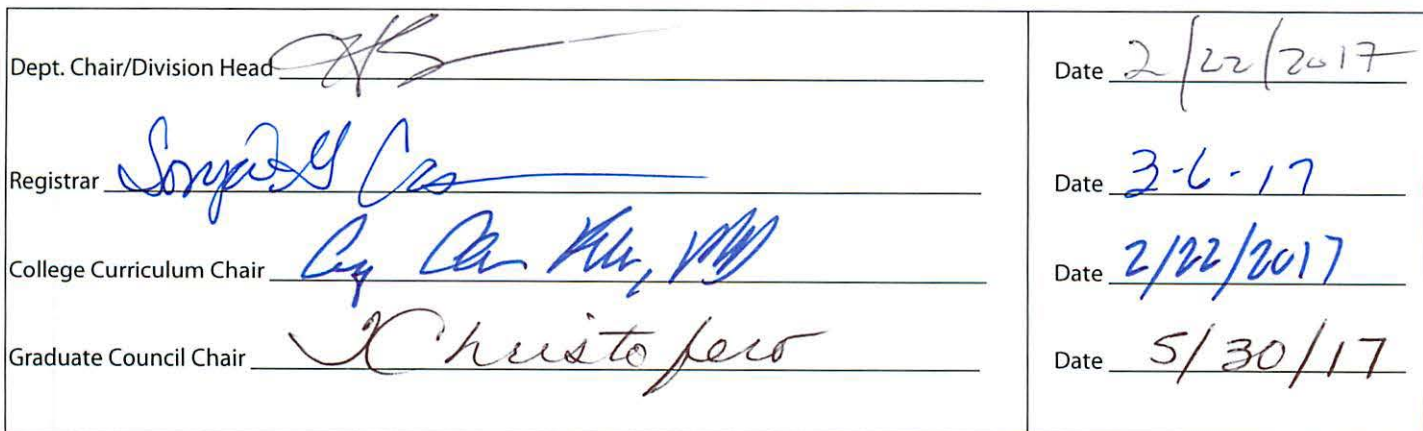 Dept. Chair/Division Head Date 2/22/2017
Registrar Sonja G Date 3-6-17
College Curriculum Chair Date 2/22/2017
Graduate Council Chair Christofero Date 5/30/17